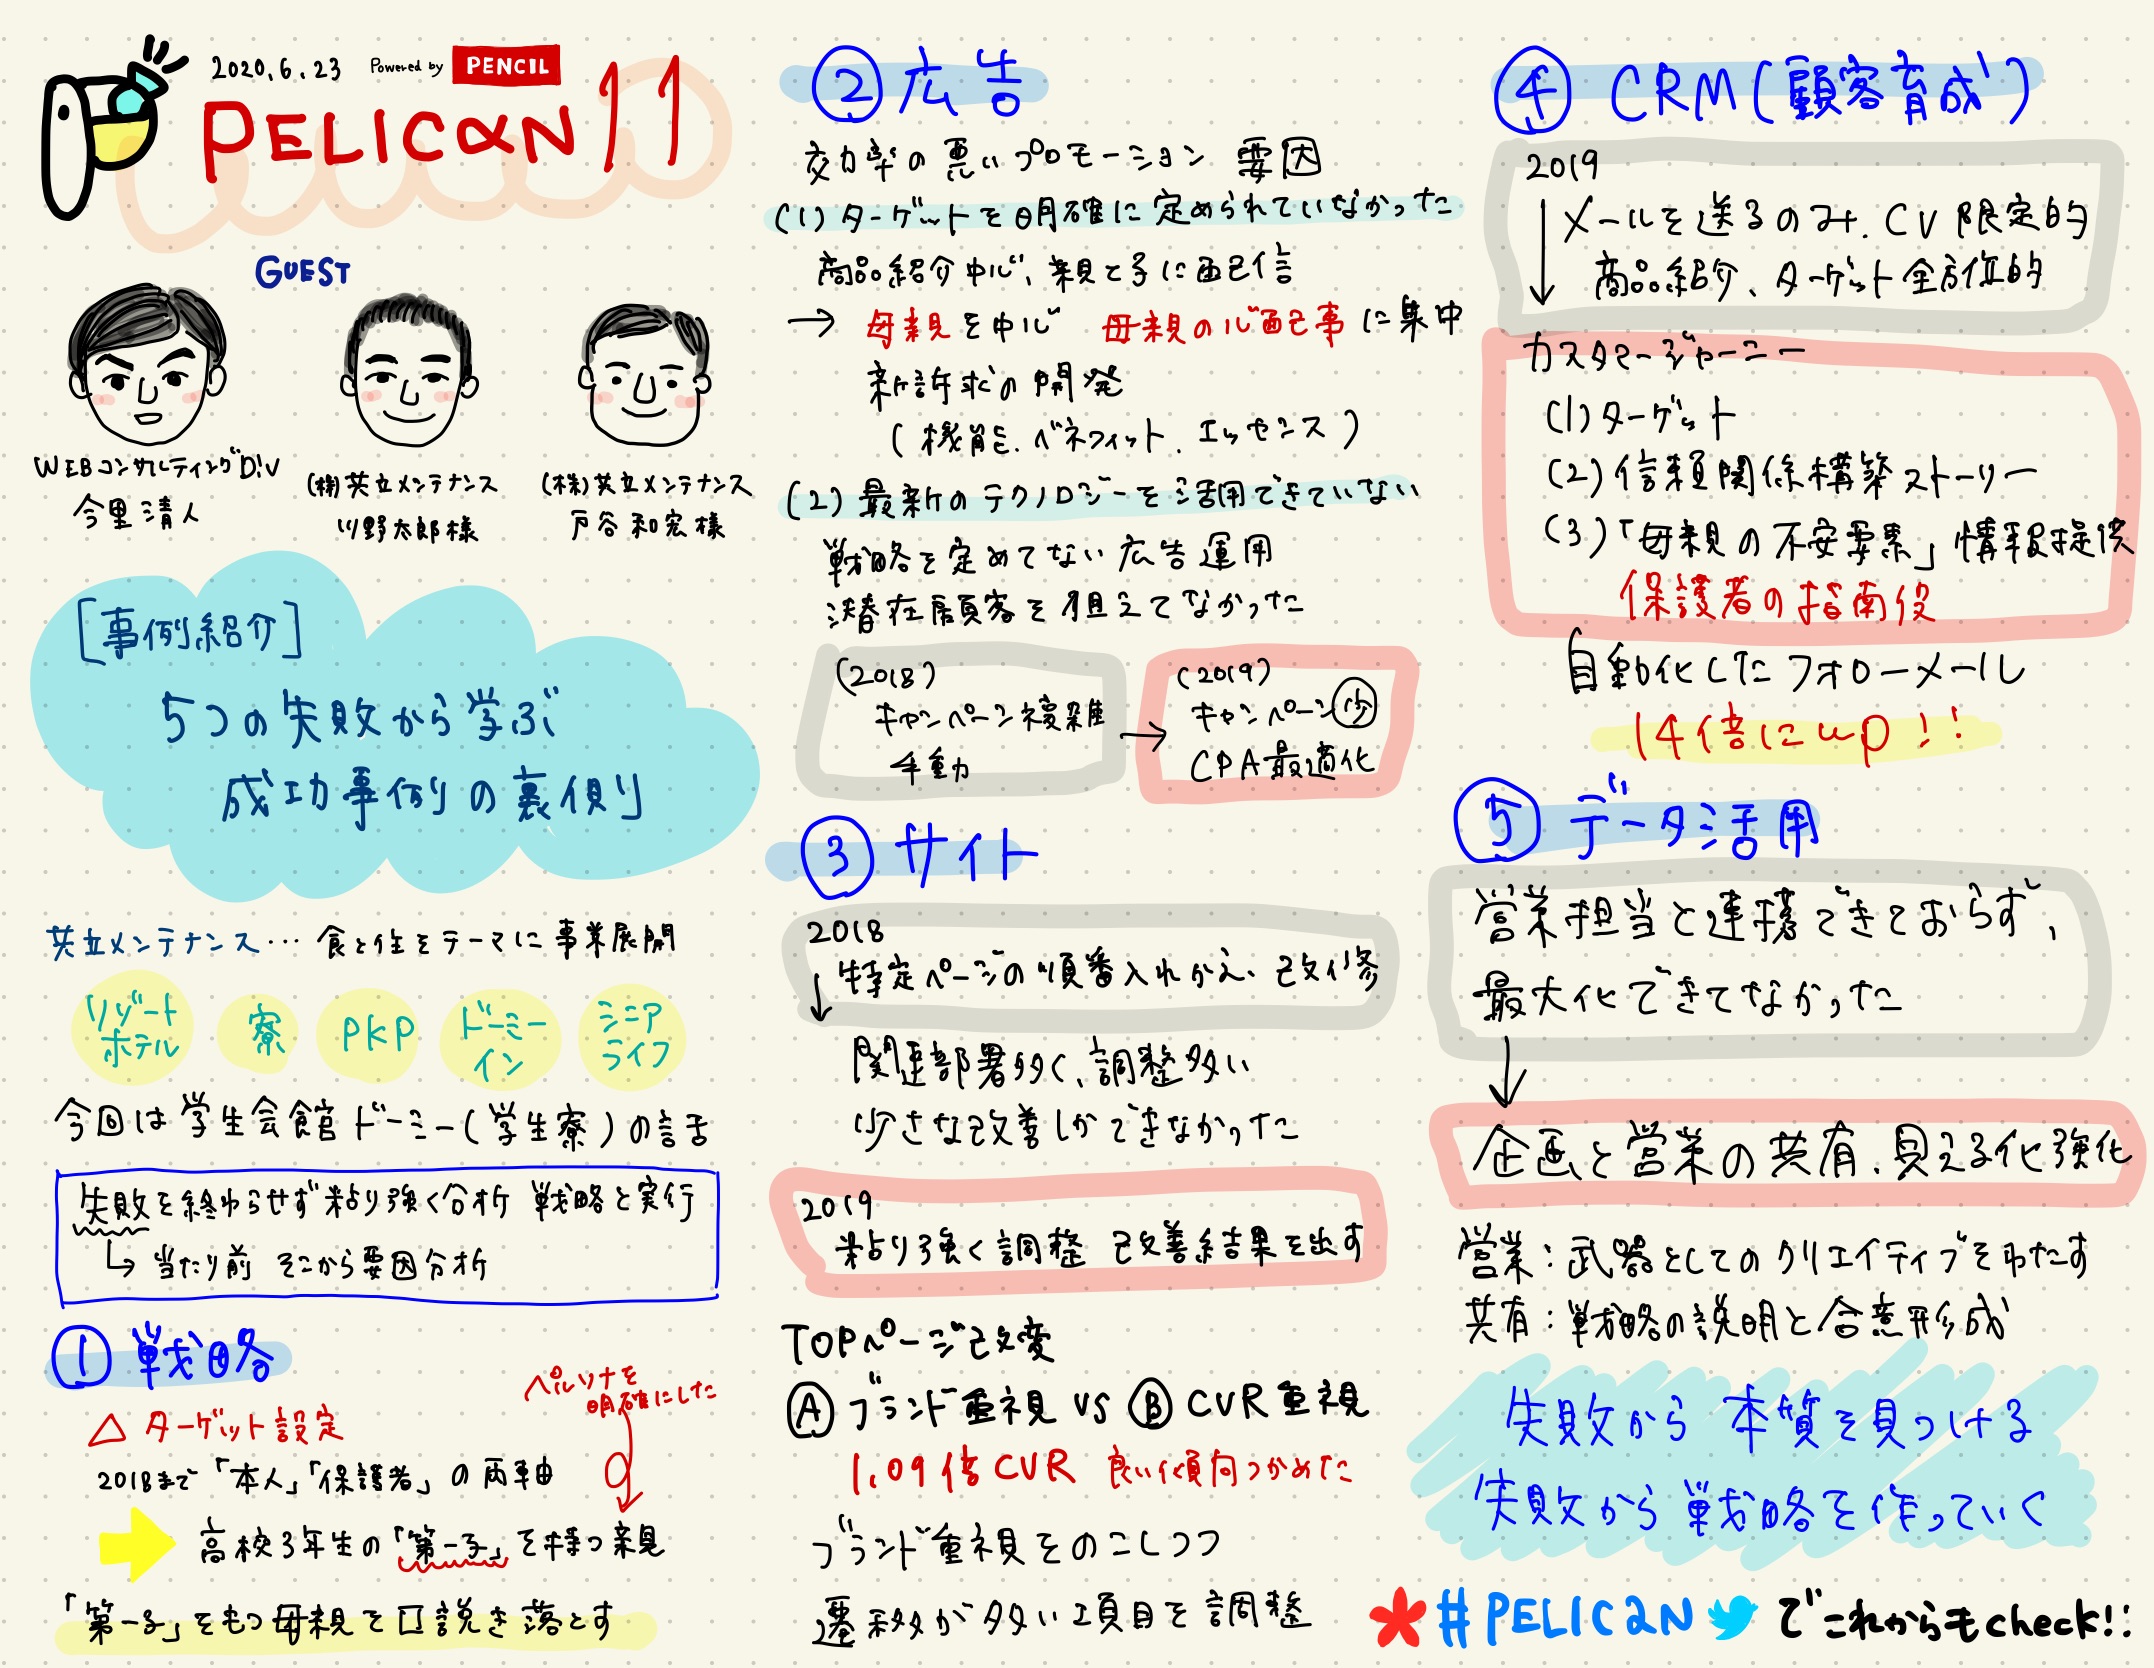 2020.6.23 Powered by PENCIL
PELICAN 11
GUEST
WEBコンサルティングDiV
今里清人
(株)共立メンテナンス
川野太郎様
(株)共立メンテナンス
戸谷和宏様
[事例紹介]
5つの失敗から学ぶ
成功事例の裏側
共立メンテナンス… 食と住をテーマに事業展開
リゾート
ホテル
寮
PKP
ドーミー
イン
シニア
ライフ
今回は学生会館ドーミー(学生寮)の話
失敗を終わらせず粘り強く分析 戦略と実行
当たり前 そこから要因分析
① 戦略
△ ターゲット設定
ペルソナを
明確にした
2018まで「本人」「保護者」の両軸
高校3年生の「第一子」を持つ親
「第一子」をもつ母親を口説き落とす
② 広告
効率の悪いプロモーション 要因
(1)ターゲットを明確に定められていなかった
商品紹介中心、親と子に配信
→ 母親を中心 母親の心配事に集中
新訴求の開発
(機能.ベネフィット.エッセンス)
(2)最新のテクノロジーを活用できていない
戦略を定めてない広告運用
潜在顧客を狙えてなかった
(2018)
キャンペーン複雑
手動
→
(2019)
キャンペーン少
CPA最適化
③ サイト
2018
特定ページの順番入れかえ、改修
関連部署多く、調整多い
少さな改善しかできなかった
2019
粘り強く調整 改善結果を出す
TOPページ改変
Ⓐ ブランド重視 VS Ⓑ CVR重視
1.09倍CVR 良い傾向つかめた
ブランド重視をのこしつつ
遷移が多い項目を調整
④ CRM(顧客育成)
2019
メールを送るのみ.CV限定的
商品紹介、ターゲット全方位的
カスタマージャーニー
(1)ターゲット
(2)信頼関係構築ストーリー
(3)「母親の不安要素」情報提供
保護者の指南役
自動化したフォローメール
14倍にup!!
⑤ データ活用
営業担当と連携できておらず、
最大化できてなかった
企画と営業の共有、見える化強化
営業:武器としてのクリエイティブをわたす
共有:戦略の説明と合意形成
失敗から 本質を見つける
失敗から 戦略を作っていく
#PELICAN でこれからもcheck!!